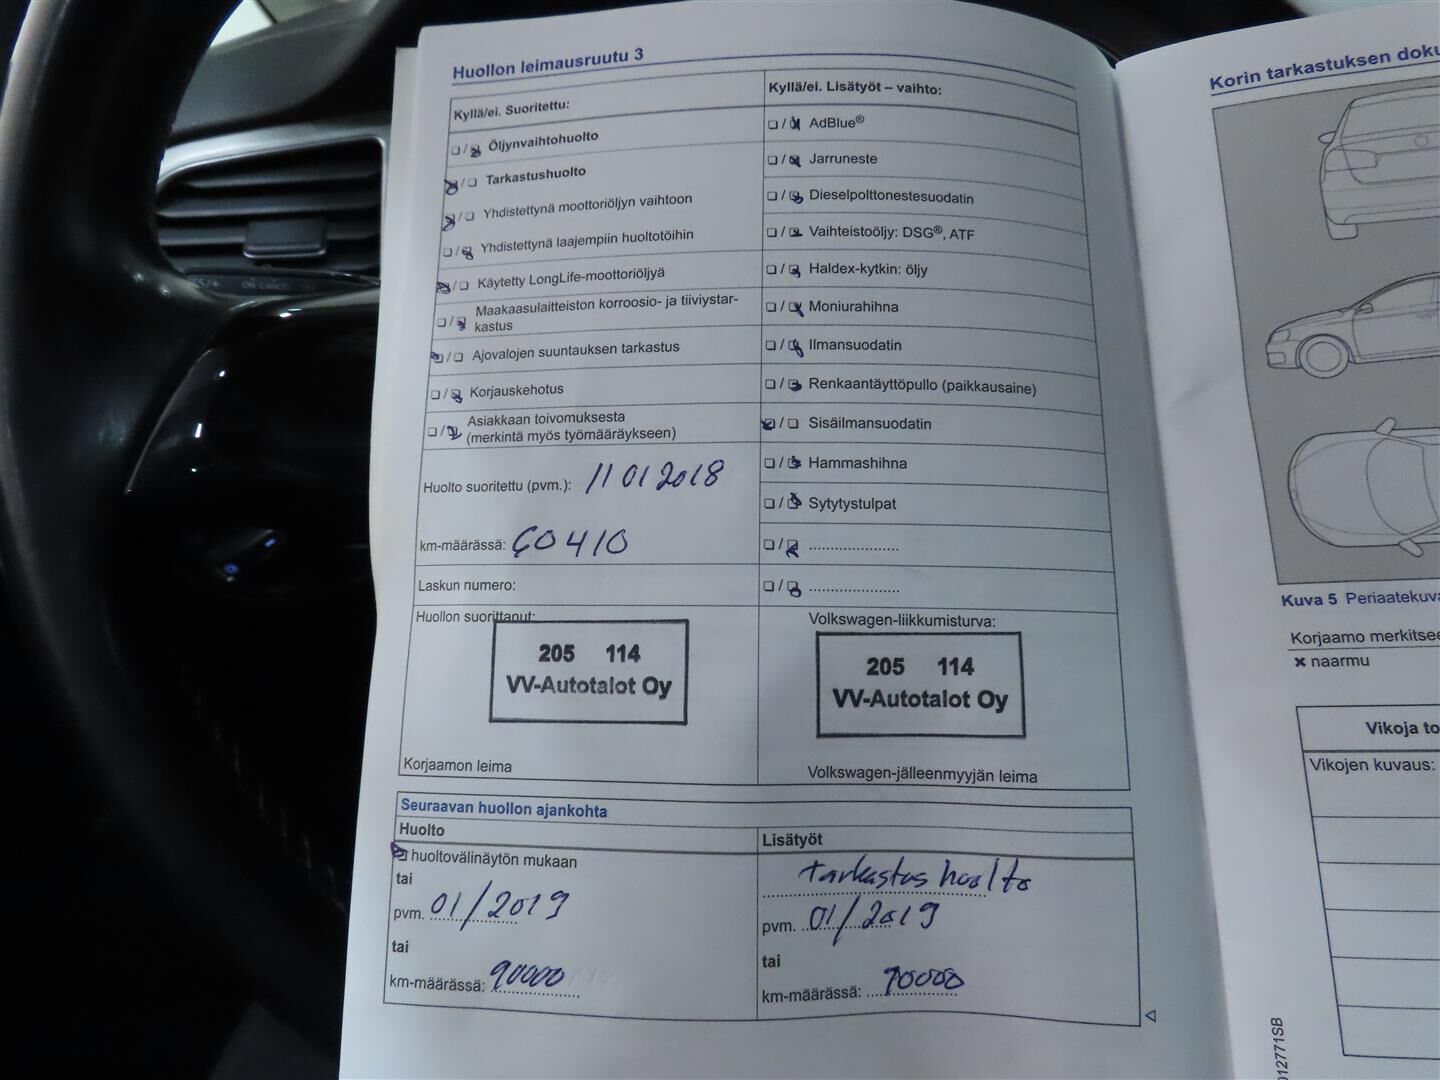 Huollon leimausruutu 3
Kyllä/ei. Suoritettu:
☐ / ☒ Öljynvaihtohuolto
☒ / ☐ Tarkastushuolto
☒ / ☐ Yhdistettynä moottoriöljyn vaihtoon
☐ / ☒ Yhdistettynä laajempiin huoltotöihin
☒ / ☐ Käytetty LongLife-moottoriöljyä
☐ / ☒ Maakaasulaitteiston korroosio- ja tiiviystar-
kastus
☒ / ☐ Ajovalojen suuntauksen tarkastus
☐ / ☒ Korjauskehotus
☐ / ☒ Asiakkaan toivomuksesta
(merkintä myös työmääräykseen)
Huolto suoritettu (pvm.): 11 01 2018
km-määrässä: 60410
Laskun numero:
Huollon suorittanut:
205 114
VV-Autotalot Oy
Korjaamon leima
Kyllä/ei. Lisätyöt – vaihto:
☐ / ☒ AdBlue®
☐ / ☒ Jarruneste
☐ / ☒ Dieselpolttonestesuodatin
☐ / ☒ Vaihteistoöljy: DSG®, ATF
☐ / ☒ Haldex-kytkin: öljy
☐ / ☒ Moniurahihna
☐ / ☒ Ilmansuodatin
☐ / ☒ Renkaantäyttöpullo (paikkausaine)
☒ / ☐ Sisäilmansuodatin
☐ / ☒ Hammashihna
☐ / ☒ Sytytystulpat
☐ / ☒ .....................
☐ / ☒ .....................
Volkswagen-liikkumisturva:
205 114
VV-Autotalot Oy
Volkswagen-jälleenmyyjän leima
Seuraavan huollon ajankohta
Huolto
☒ huoltovälinäytön mukaan
tai
pvm. 01/2019
tai
km-määrässä: 90000
Lisätyöt
tarkastus huolto
pvm. 01/2019
tai
km-määrässä: 90000
Korin tarkastuksen doku
Kuva 5 Periaatekuva
Korjaamo merkitsee
✖ naarmu
Vikoja to
Vikojen kuvaus:
012771SB